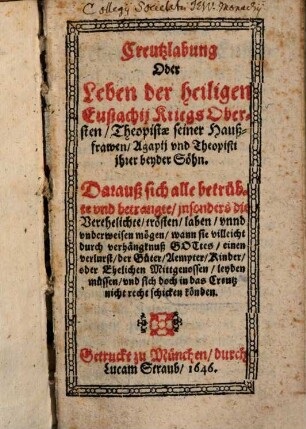 Collegij Societatis JESV Monachij
Creutzlabung
Oder
Leben der heiligen
Eustachij Kriegs Ober-
sten / Theopistæ seiner Hauß-
frawen / Agapij vnd Theopisti
jhrer beyder Söhn.
Darauß sich alle betrüb-
te vnd betrangte / jnsonders die
Verehelichte / trösten / laben / vnnd
vnderweisen mögen / wann sie villeicht
durch verhängknuß GOttes / einen
verlurst / der Güter / Aempter / Kinder /
oder Ehelichen Mittgenossen / leyden
müssen / vnd sich doch in das Creutz
nicht recht schicken können.
Getruckt zu München / durch
Lucam Straub / 1646.